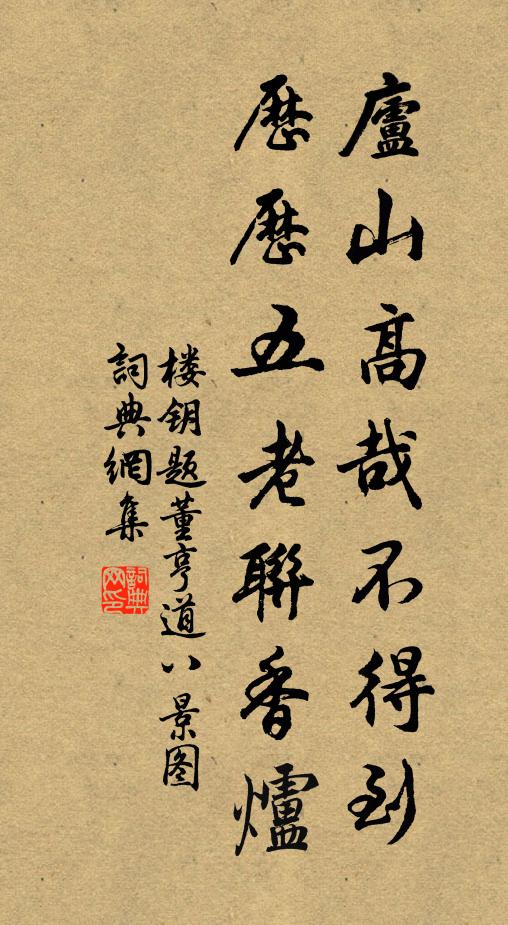 廬山高哉不得到
歷歷五老聯香爐
楼钥题董亨道八景图
詞典網集
詞典网印